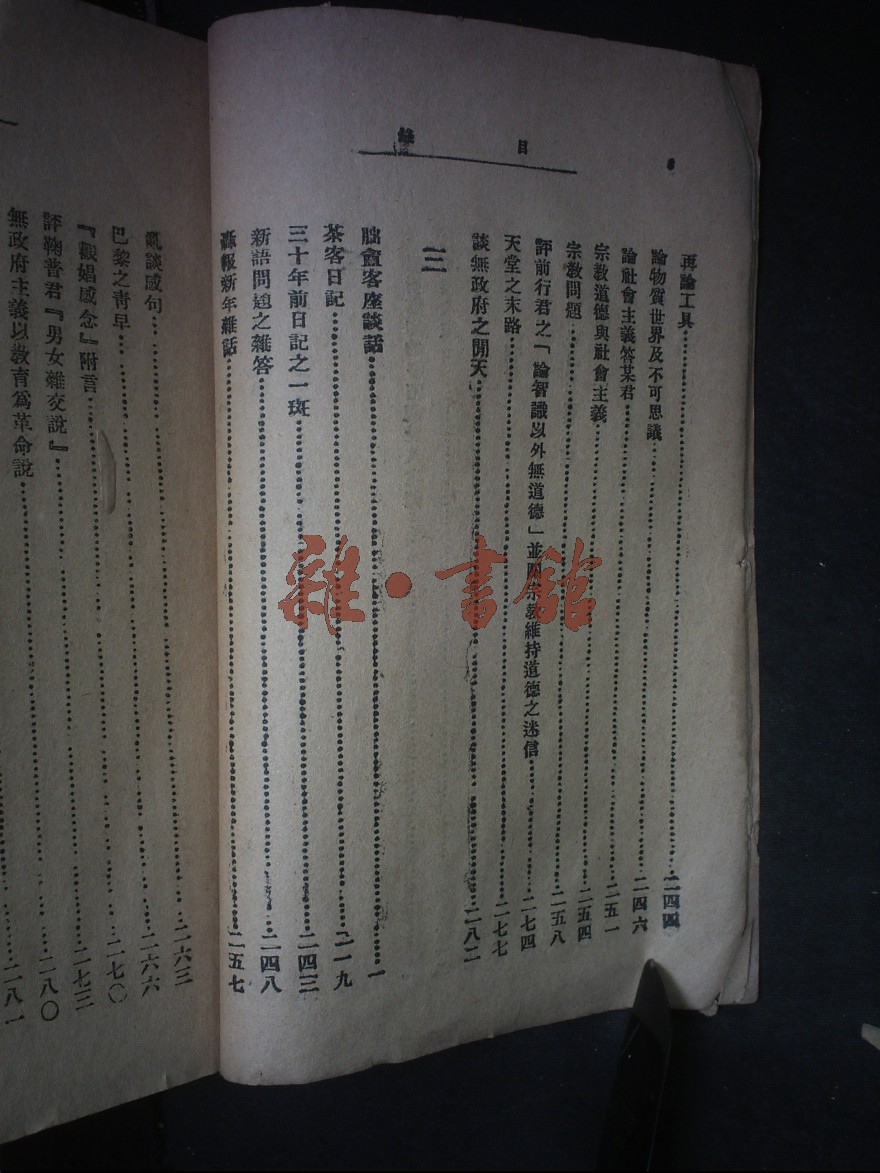 目錄
再論工具……二四四
論物質世界及不可思議……二四六
論社會主義答某君……二五一
宗教道德與社會主義……二五四
宗教問題……二五八
評前行君之「論智識以外無道德」並闢宗教維持道德之迷信……二七四
天堂之末路……二七七
談無政府之閒天……二八二
三
朏盦客座談話……一
茶客日記……二一九
三十年前日記之一斑……二四三
新語問題之雜答……二四八
報新年雜話……二五七
談感句……二六三
巴黎之青早……二六六
『觀娼感念』附言……二七〇
評鞠普君『男女雜交說』……二七三
無政府主義以教育為革命說……二八〇
二八一
雜·書館